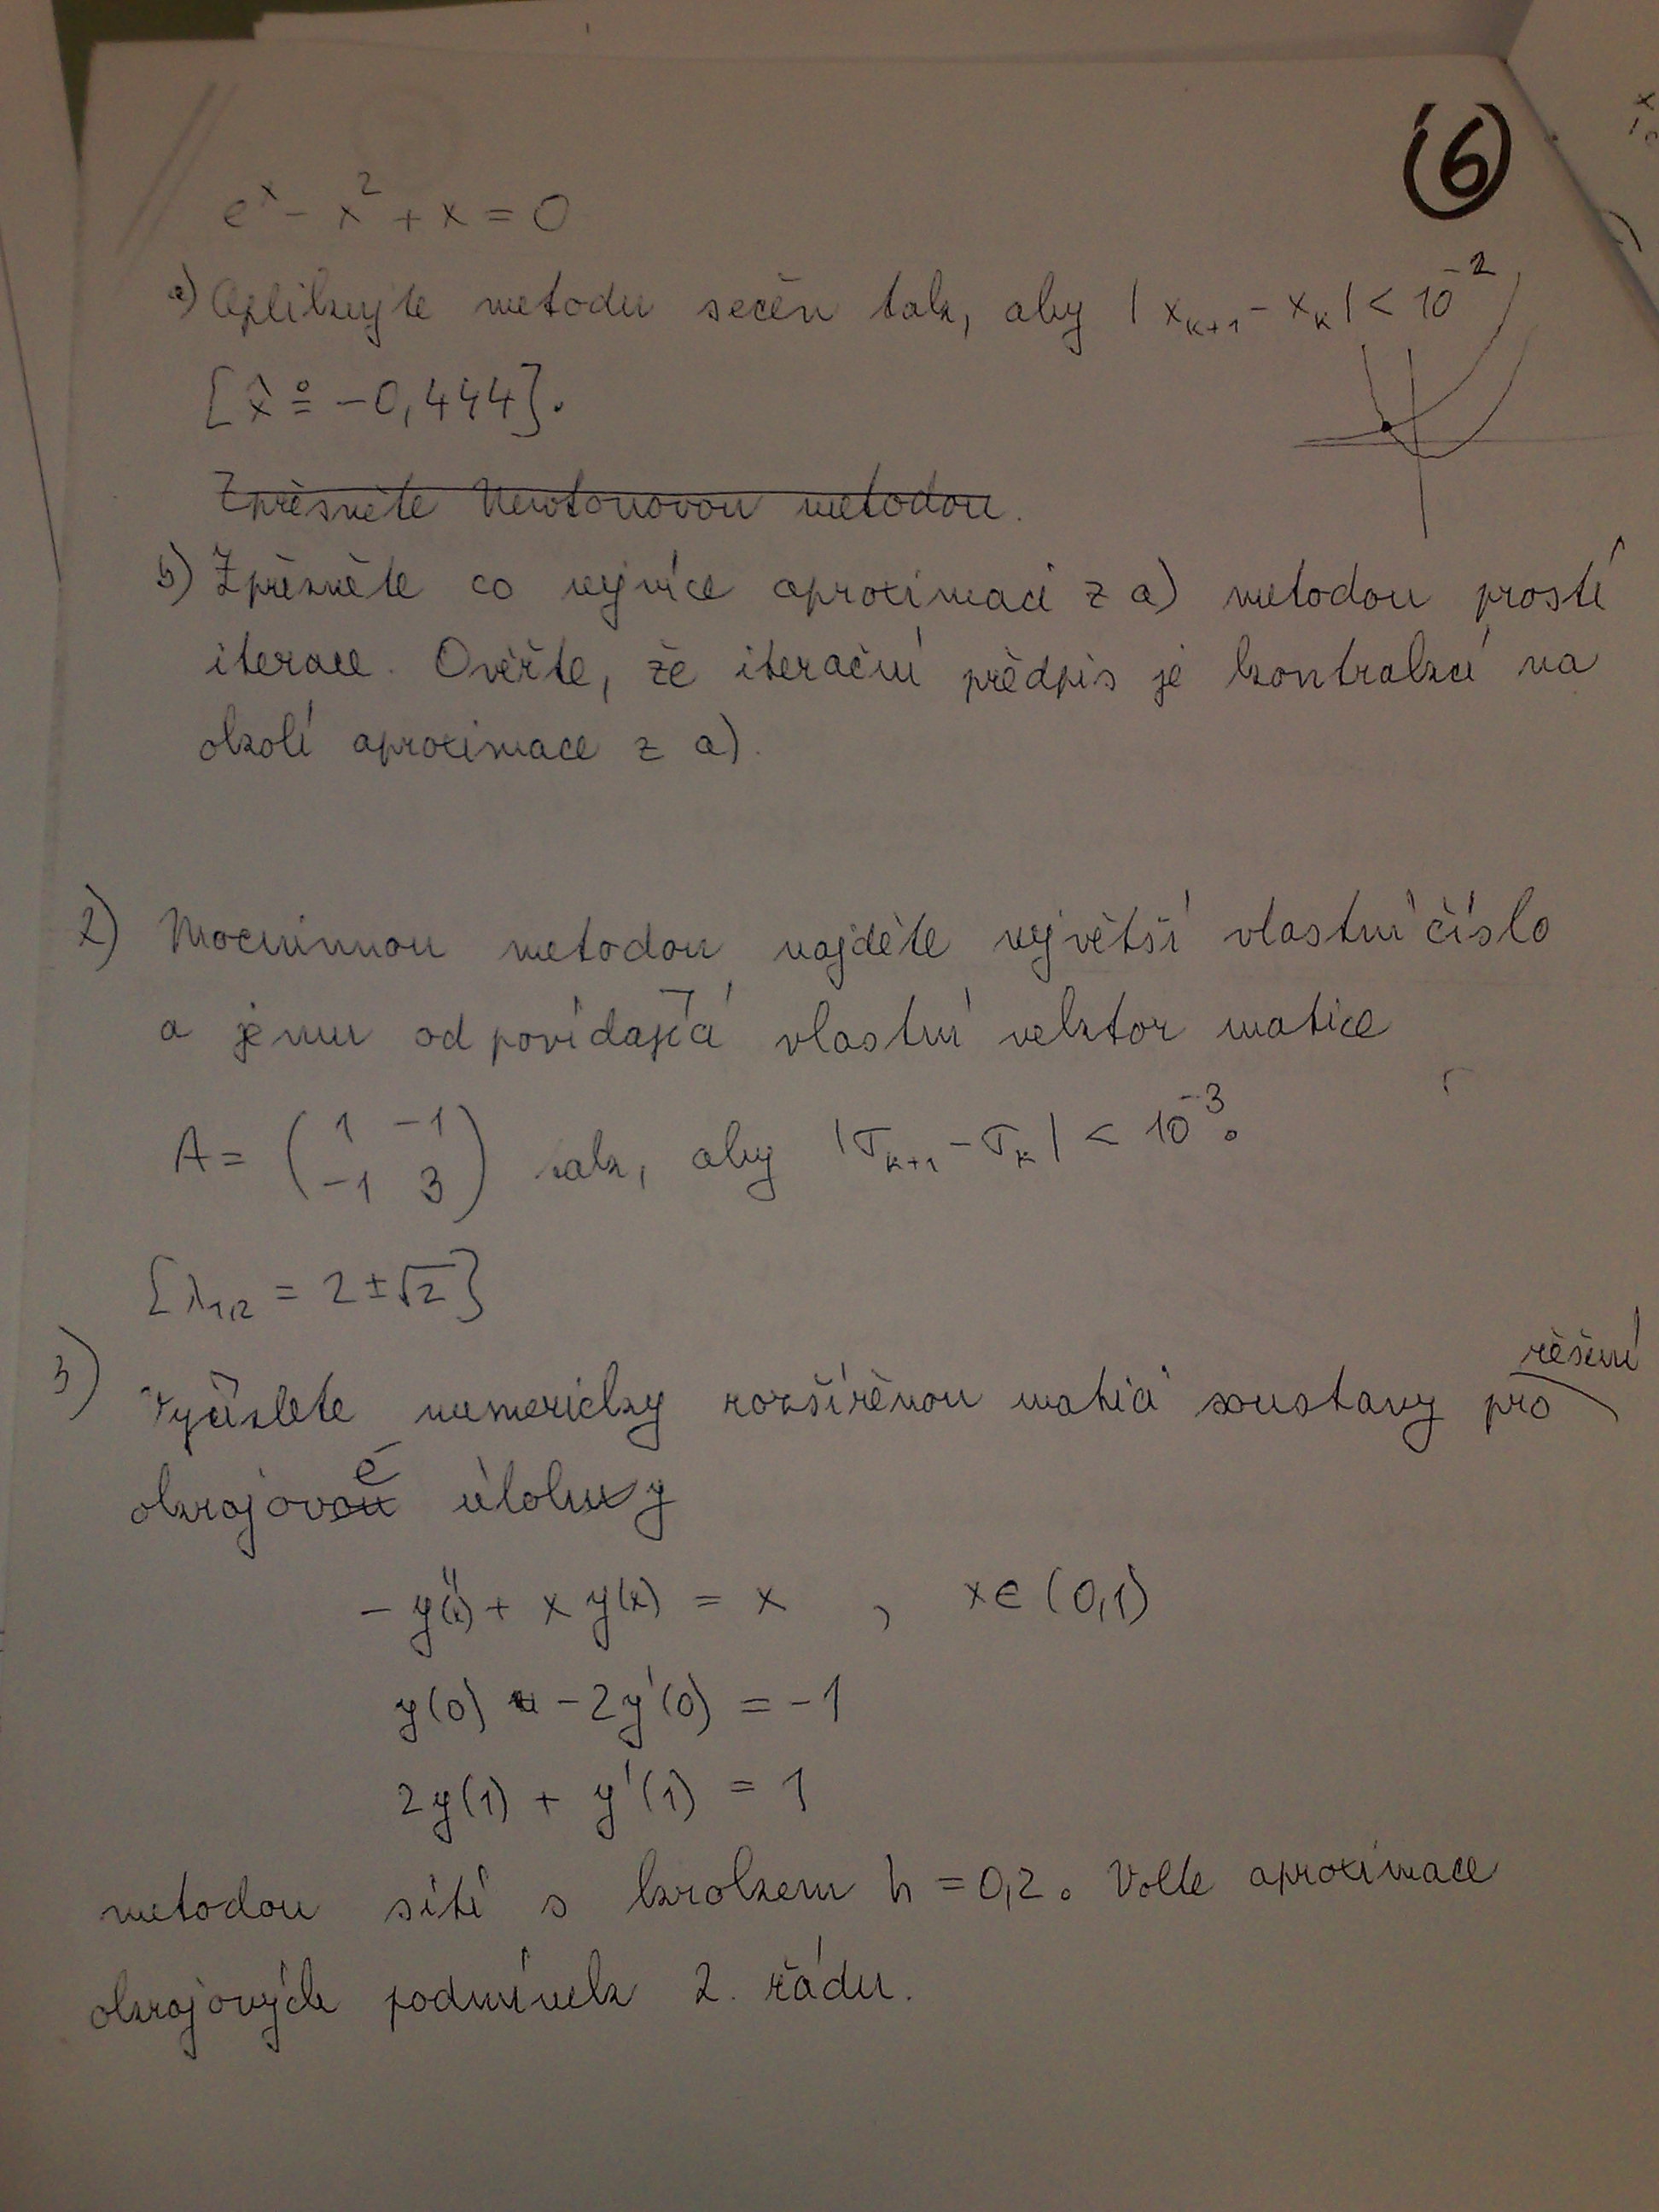 6
e^x - x^2 + x = 0
a) Aplikujte metodu sečen tak, aby |x_{k+1} - x_k| < 10^{-2}
[x̂ ≐ -0,444].
Zpřesněte Newtonovou metodou.
b) Zpřesněte co nejvíce aproximaci z a) metodou prosté
iterace. Ověřte, že iterační předpis je kontrakcí na
okolí aproximace z a).
2) Mocninnou metodou najděte největší vlastní číslo
a jemu odpovídající vlastní vektor matice
A = (1 -1; -1 3) tak, aby |σ_{k+1} - σ_k| < 10^{-3}.
[λ_{1,2} = 2 ± √2]
3) Vyčíslete numericky rozšířenou matici soustavy pro řešení
okrajové úlohy
-y''(x) + x y(x) = x , x ∈ (0,1)
y(0) - 2y'(0) = -1
2y(1) + y'(1) = 1
metodou sítí s krokem h = 0,2. Volte aproximace
okrajových podmínek 2. řádu.